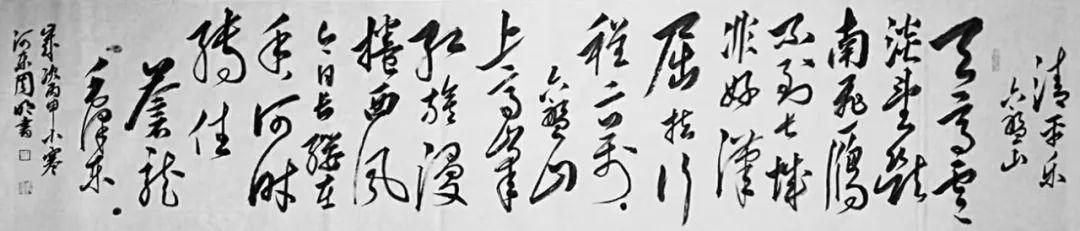 清平乐
六盤山
天高雲
淡望断
南飛雁
不到长城
非好漢
屈指行
程二万
六盤山
上高峰
红旗漫
捲西风
今日长缨在
手何时
缚住
蒼龍
毛泽东
歲次丙申小寒
河东周明書